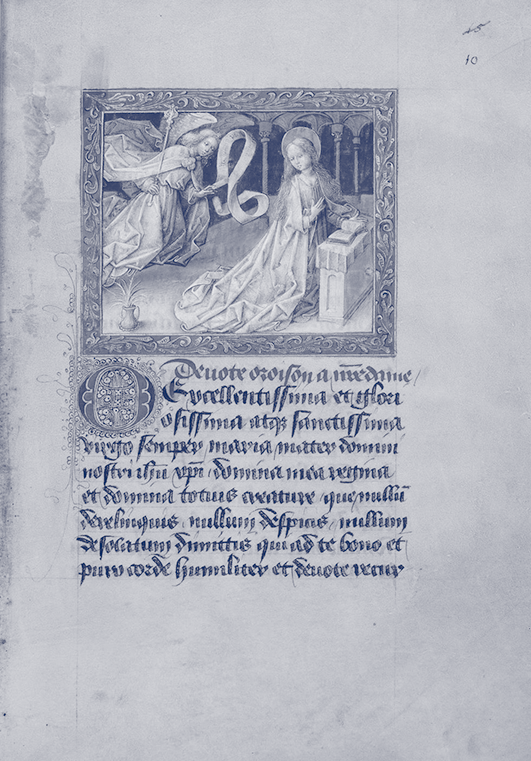 45
10
Deuote oroison a nr̃e dame
O Excellentissima et glori
osissima atq̃ sanctissima
virgo semper maria mater domini
nostri ihũ xpi / domina mea regina
et domina totius creature / que nullũ
derelinquis / nullum despicis / nullum
desolatum dimittis qui ad te bono et
puro corde humiliter et deuote recur